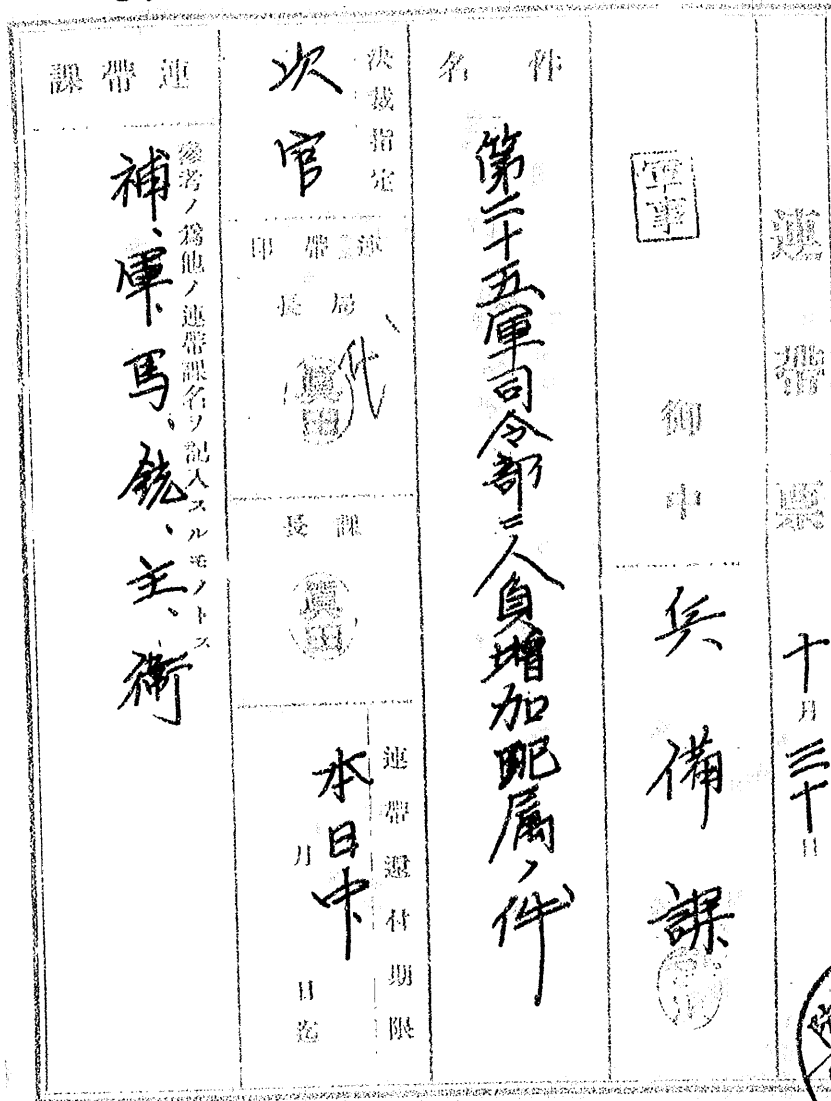 連帶票
十月三十日
軍事
御中
兵備課
件名
第二十五軍司令部ニ人員增加配属ノ件
決裁指定
次官
連帶印
局長
眞田
代
課長
眞田
連帶還付期限
本日中
月
日迄
連帶課
參考ノ爲他ノ連帶課名ヲ記入スルモノトス
補、軍、馬、銃、主、衛